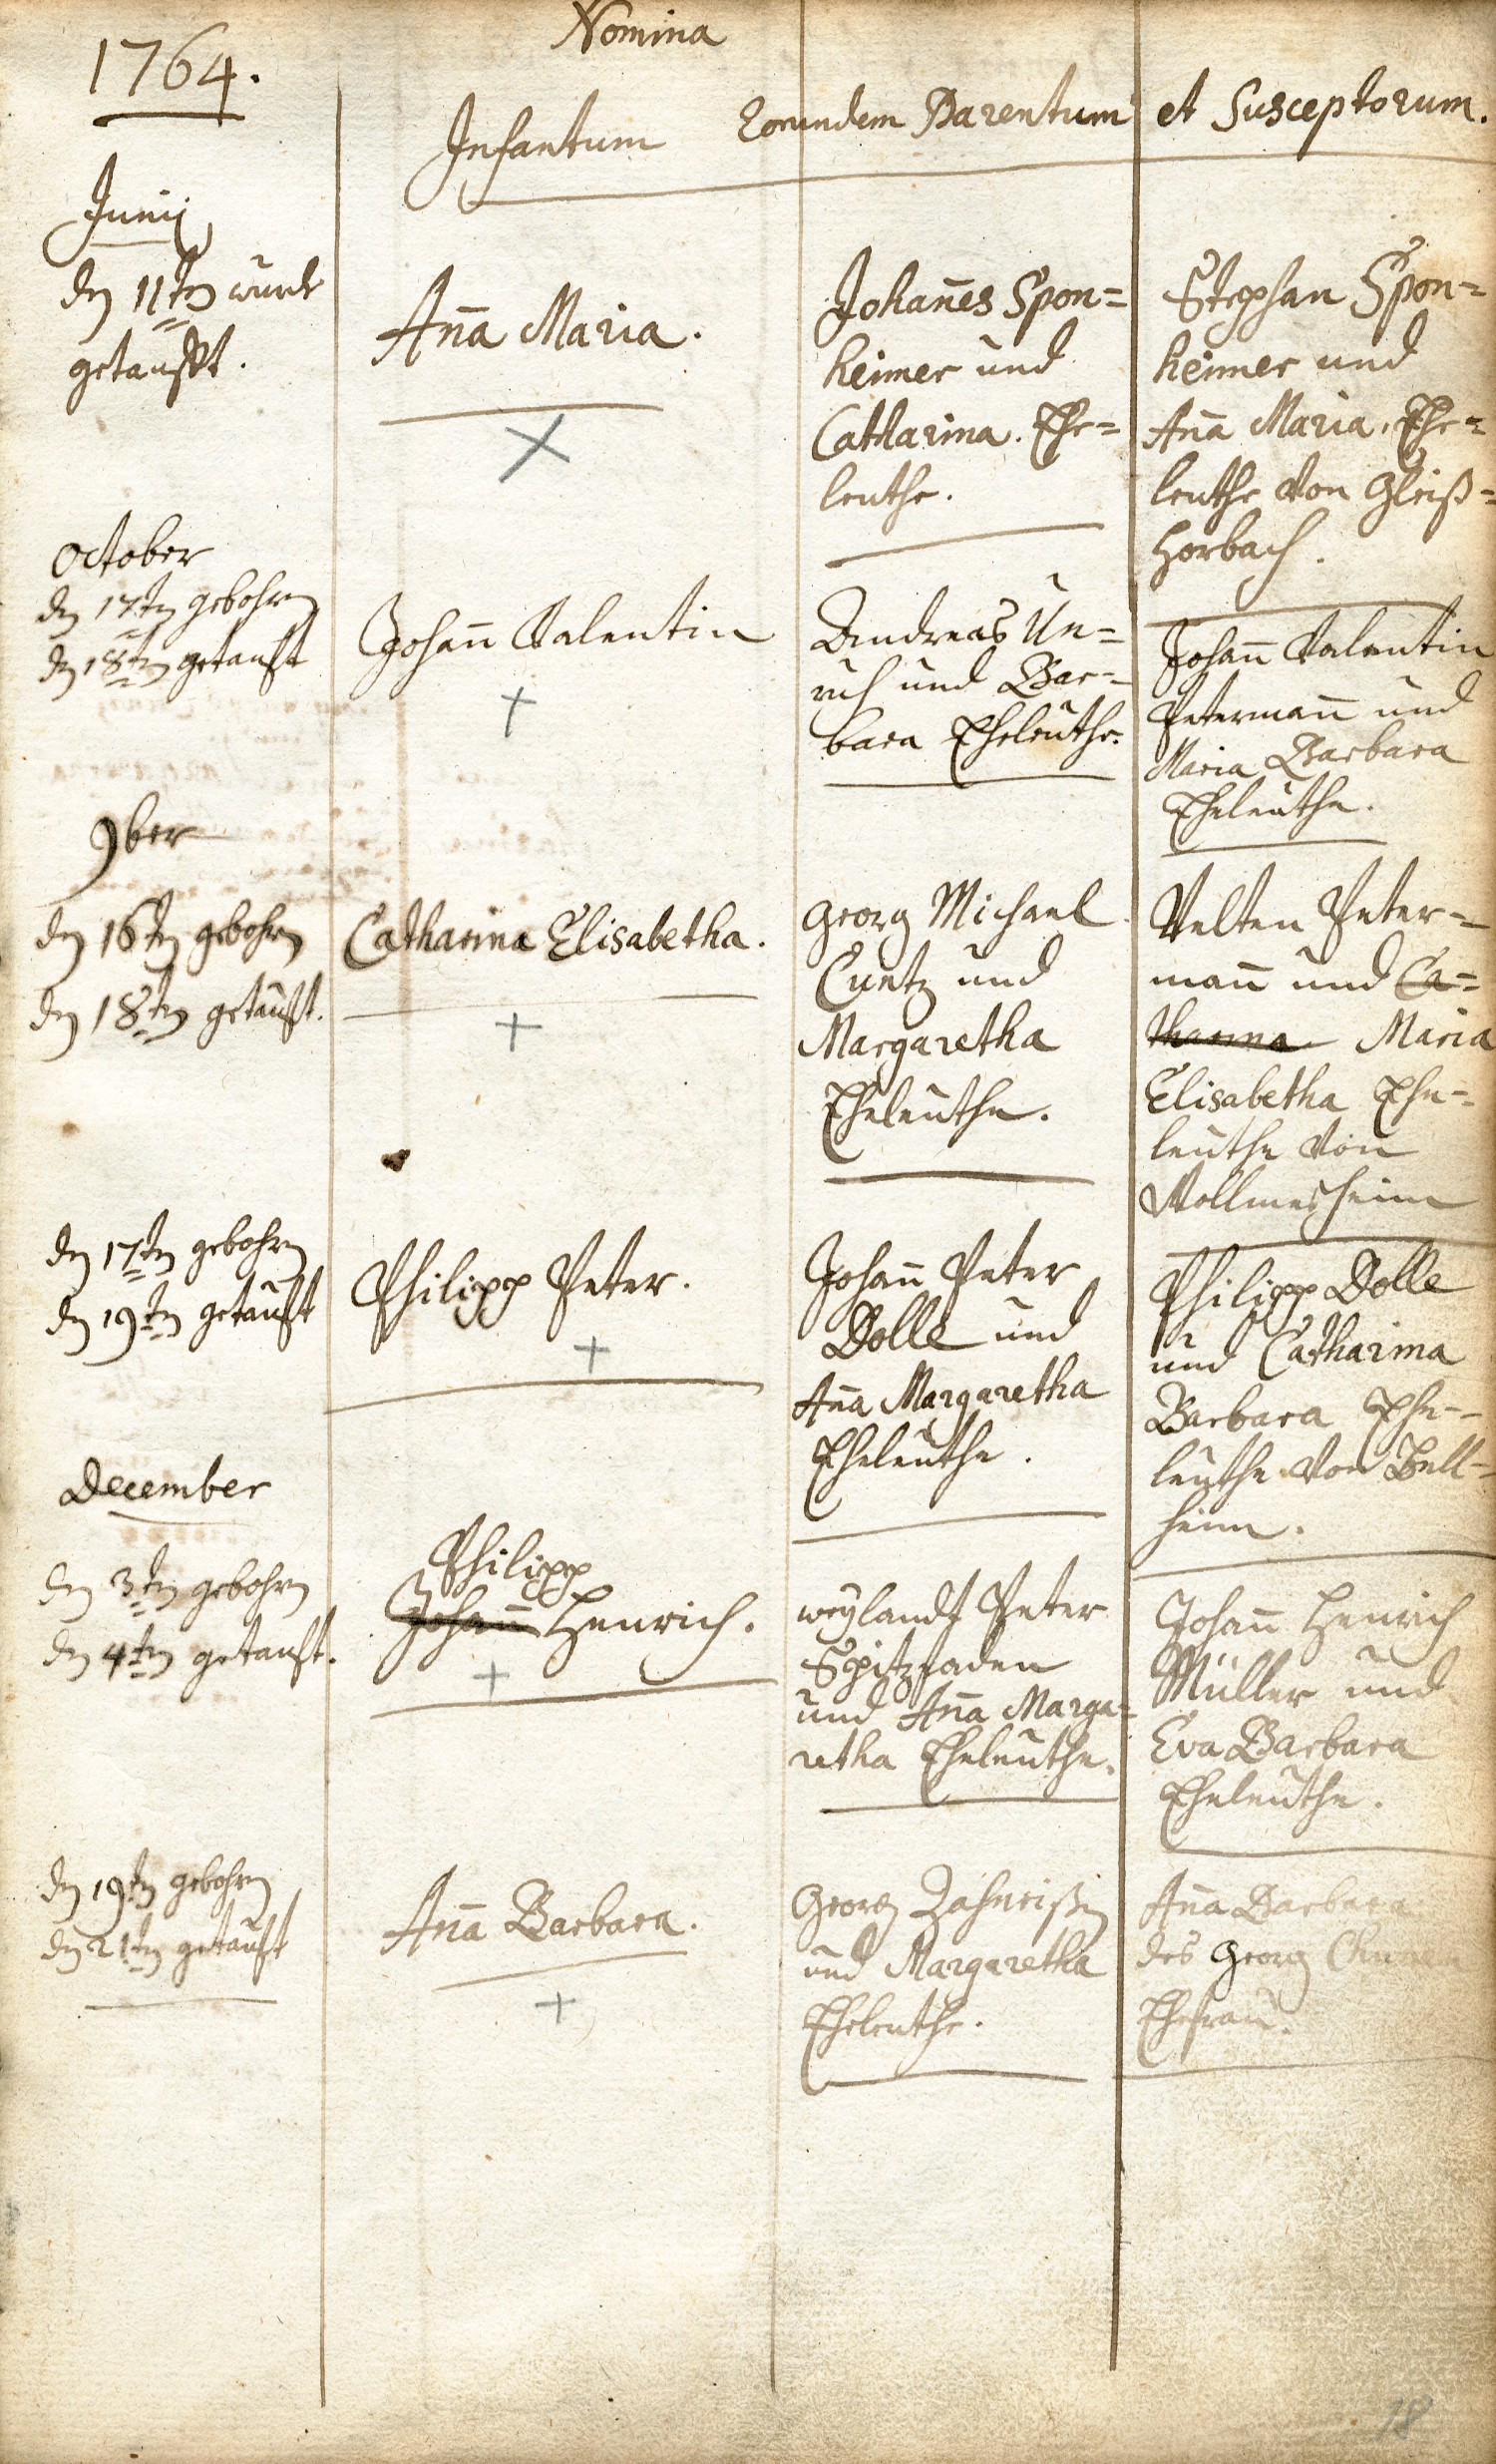 1764.
Nomina
Infantum
Eorundem Parentum
et Susceptorum.
Junij
den 11ten wurde
getaufft.
Anna Maria.
Johannes Spon=
heimer und
Catharina. Ehe=
leuthe.
Stephan Spon=
heimer und
Anna Maria. Ehe=
leuthe von Gleiß=
horbach.
October
den 17ten gebohren
den 18ten getauft
Johann Valentin
Andreas Un=
ruh und Bar=
bara Eheleuthe.
Johann Valentin
Petermann und
Maria Barbara
Eheleuthe.
9ber
den 16ten gebohren
den 18ten getauft.
Catharina Elisabetha.
Georg Michael
Cuntz und
Margaretha
Eheleuthe.
Velten Peter=
mann und Ca=
tharina Maria
Elisabetha Ehe=
leuthe von
Vollmesheim
den 17ten gebohren
den 19ten getauft
Philipp Peter.
Johann Peter
Dolle und
Anna Margaretha
Eheleuthe.
Philipp Dolle
und Catharina
Barbara Ehe=
leuthe von Bell=
heim.
December
den 3ten gebohren
den 4ten getauft.
Philipp
Johann Henrich.
weylandt Peter
Spitzfaden
und Anna Marga=
retha Eheleuthe.
Johann Henrich
Müller und
Eva Barbara
Eheleuthe.
den 19ten gebohren
den 21ten getauft
Anna Barbara.
Georg
und Margaretha
Eheleuthe.
Anna Barbara
des Georg
Ehefrau.
18